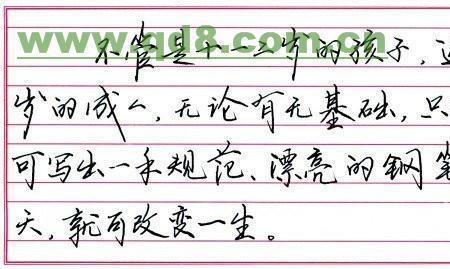 www.qd8.com.cn
不管是十一二岁的孩子,还
岁的成人,无论有无基础,只
可写出一手规范、漂亮的钢笔
天,就可改变一生。